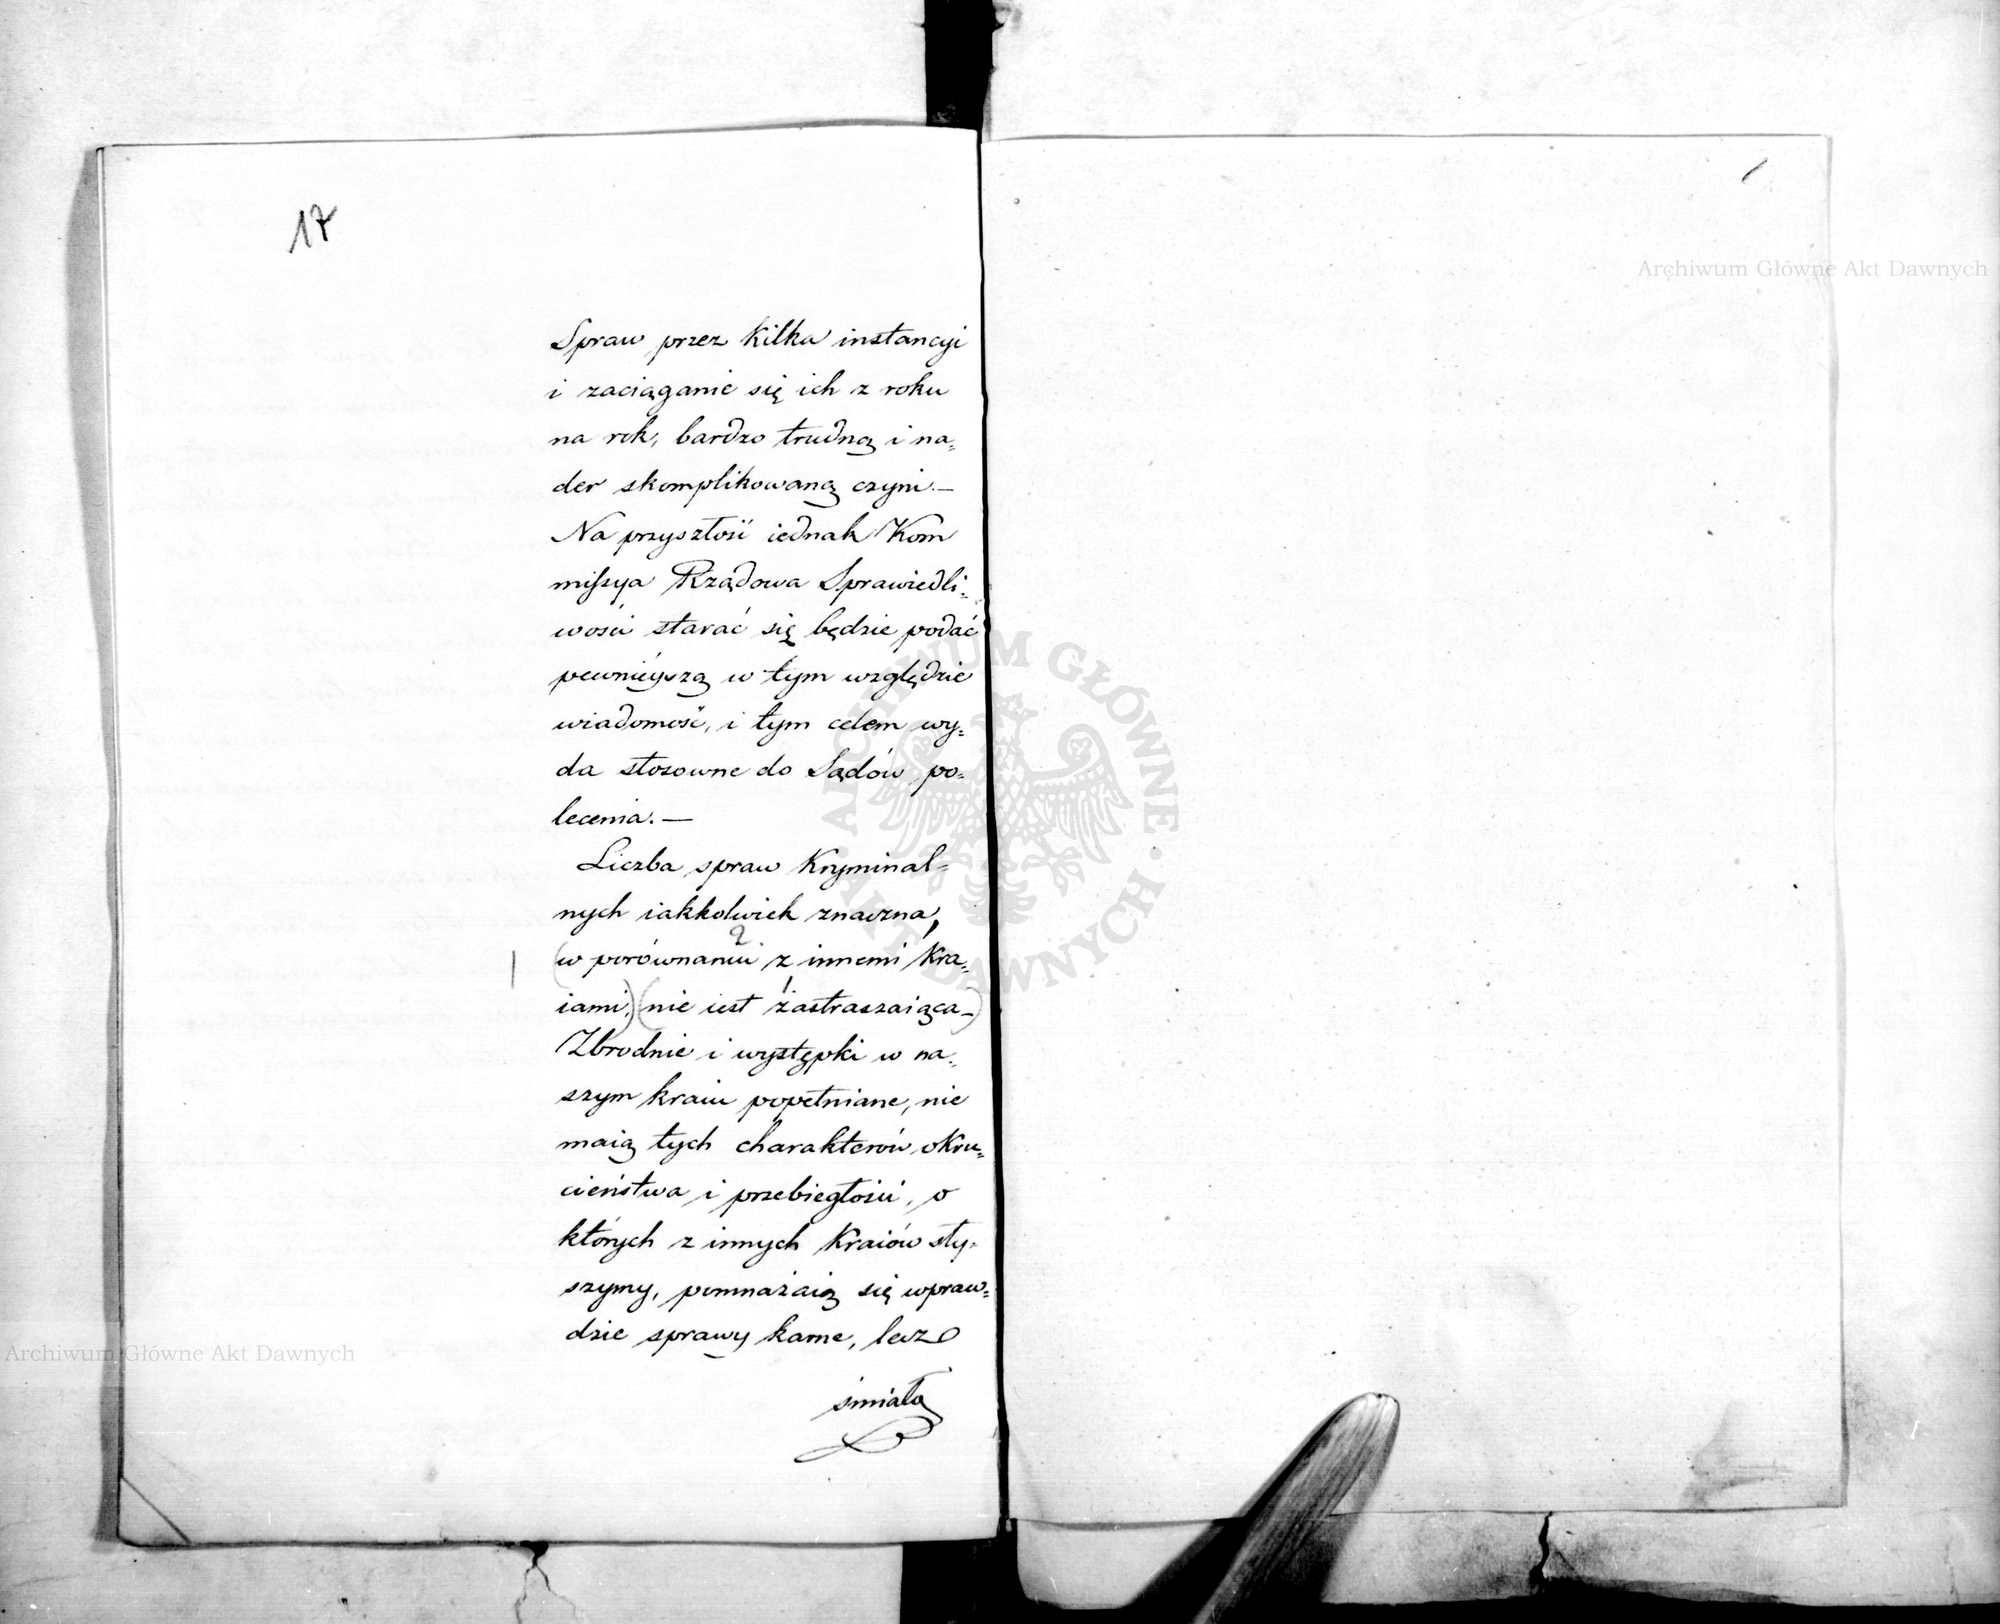 17
Spraw przez kilka instancyi
i zaciąganie się ich z roku
na rok, bardzo trudną i na=
der skomplikowaną czyni.—
Na przyszłość iednak Kom
missya Rządowa Sprawiedli=
wości starać się będzie podać
pewnieyszą w tym względzie
wiadomość, i tym celem wy=
da stosowne do Sądów po=
lecenia.—
Liczba spraw Kryminal=
nych iakkolwiek znaczna,
2
(w porównaniu z innemi Kra=
iami,) (nie iest zastraszaiąca—)
Zbrodnie i występki w na=
szym kraiu popełniane, nie
maią tych charakterów okru=
cieństwa i przebiegłości, o
których z innych Kraiów sły=
szymy, pomnażaią się wpraw=
dzie sprawy karne, lecz
śmiało
Archiwum Główne Akt Dawnych
Archiwum Główne Akt Dawnych
ARCHIWUM GŁÓWNE · AKT DAWNYCH ·